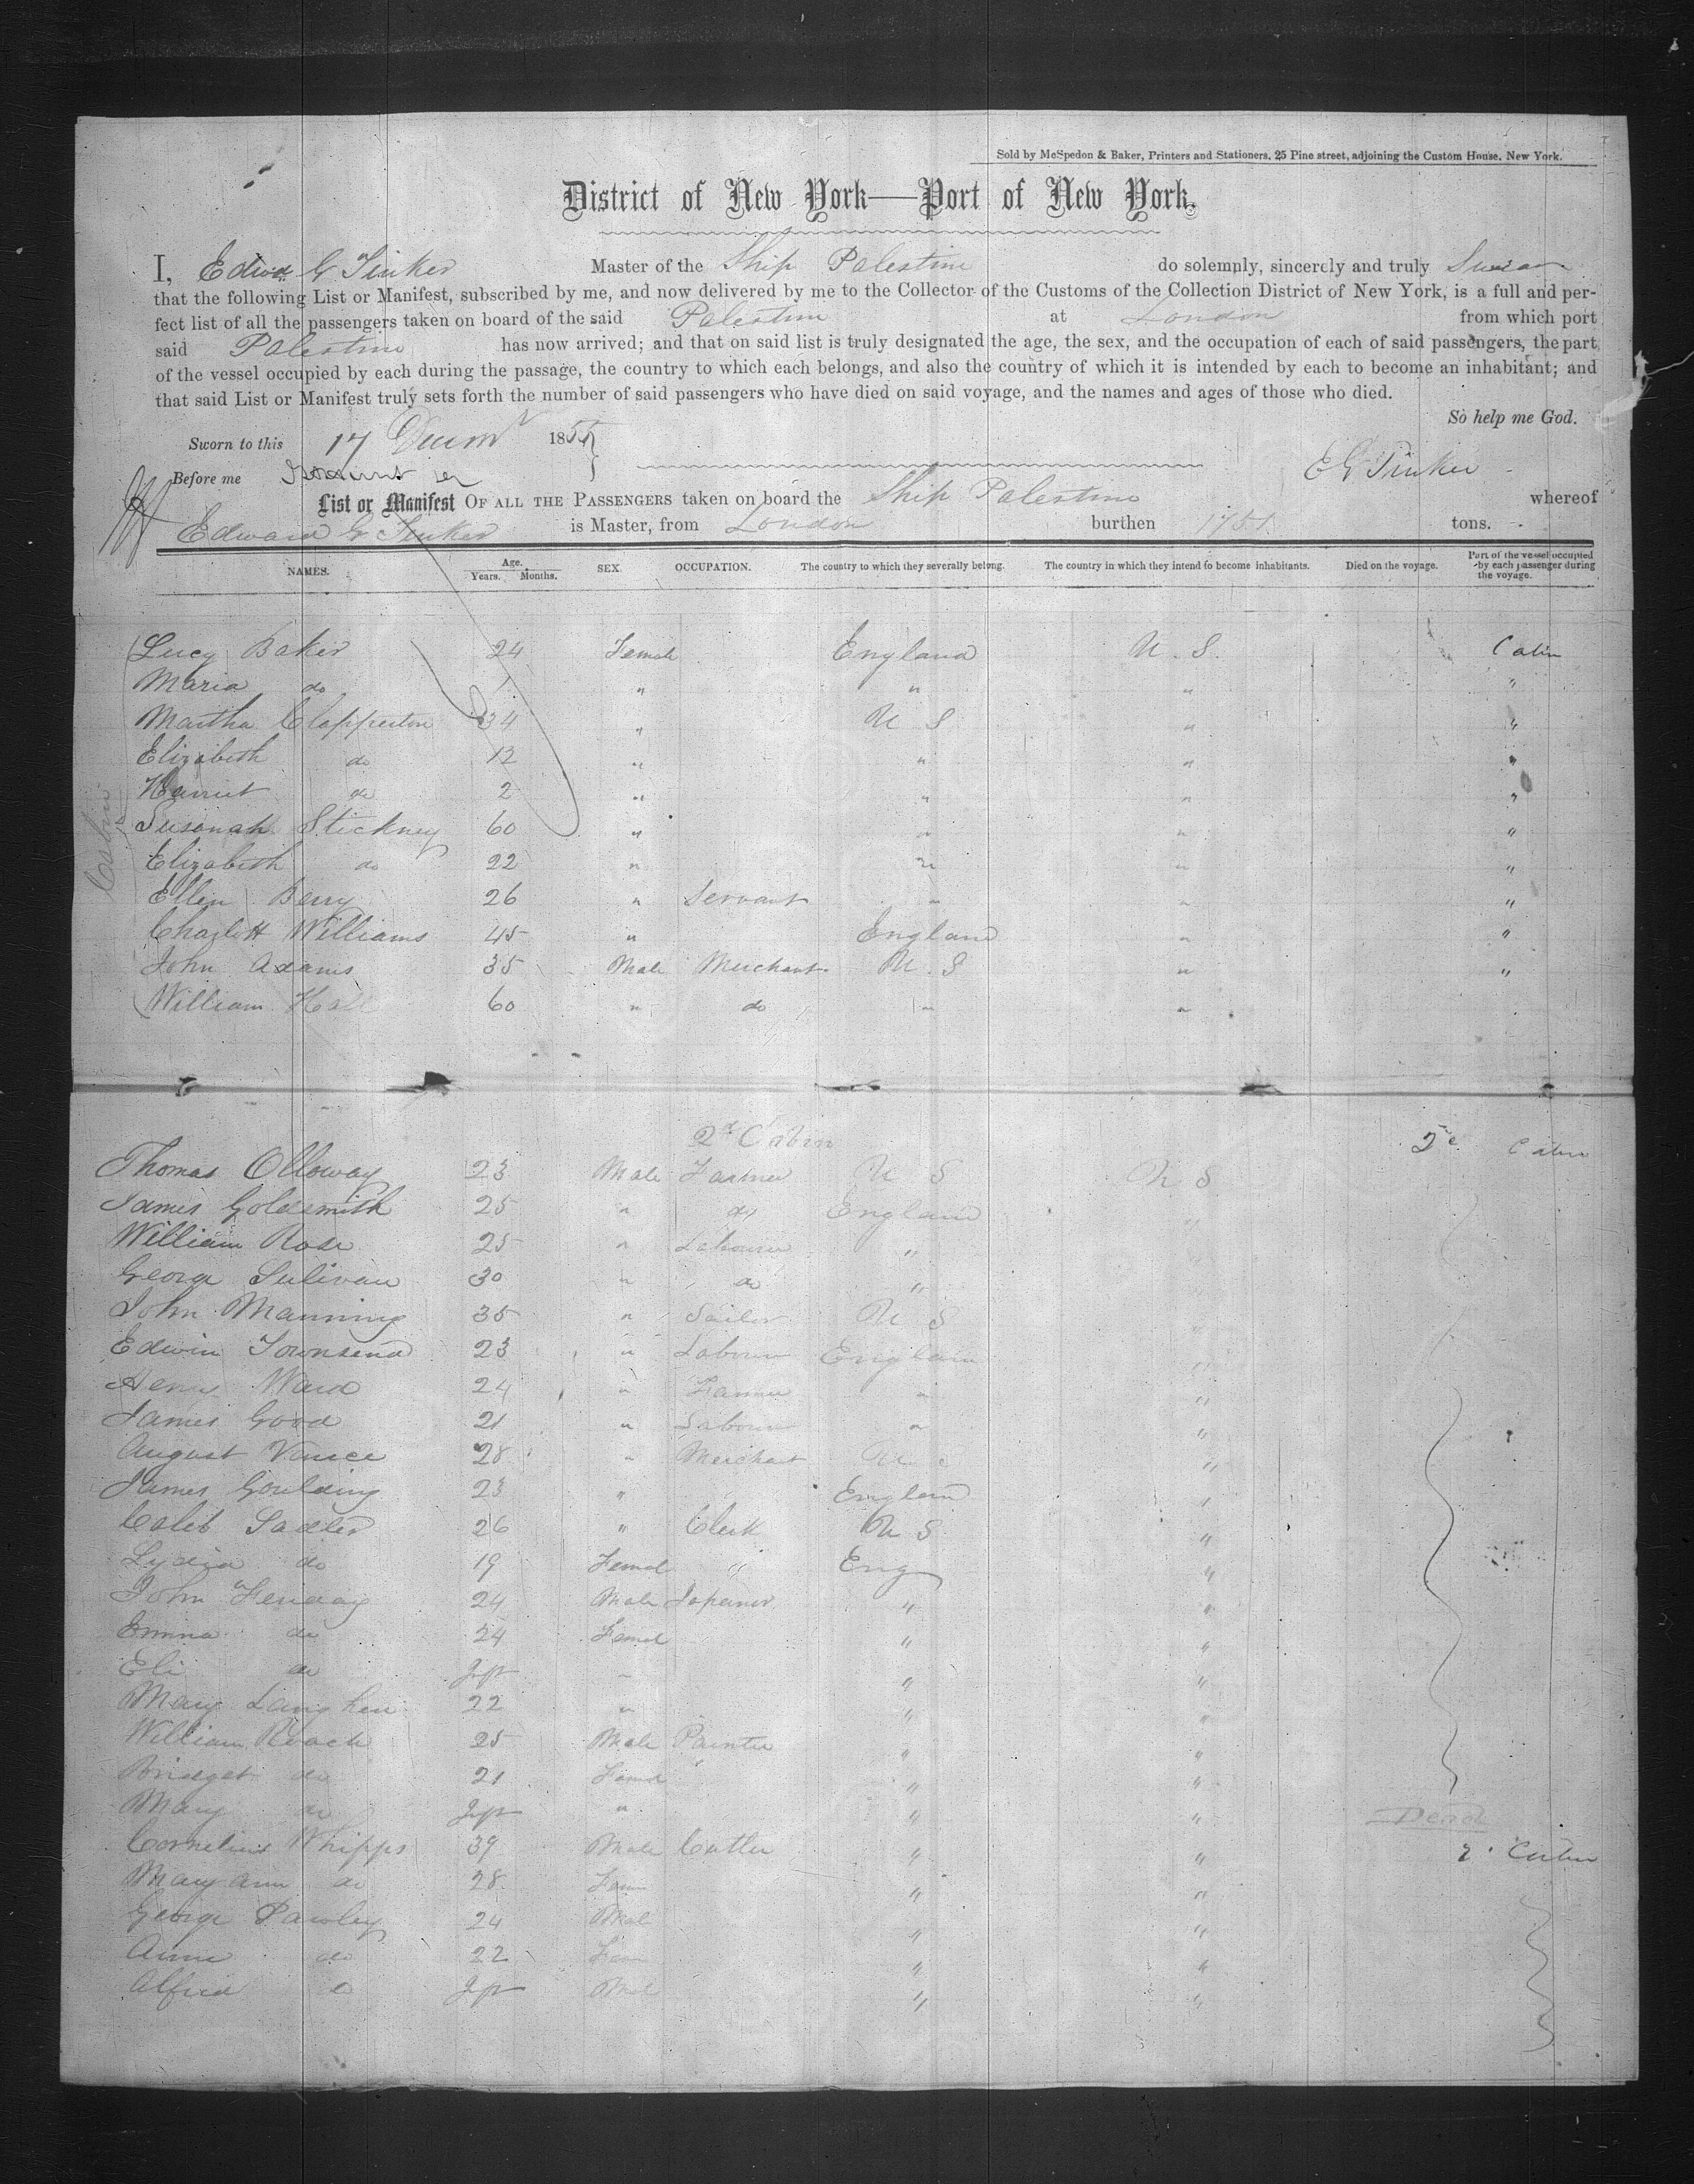 Sold by McSpedon & Baker, Printers and Stationers, 25 Pine street, adjoining the Custom House, New York.
District of New York—Port of New York.
I, Edwd G Tinker Master of the Ship Palestine do solemnly, sincerely and truly Swear
that the following List or Manifest, subscribed by me, and now delivered by me to the Collector of the Customs of the Collection District of New York, is a full and per-
fect list of all the passengers taken on board of the said Palestine at London from which port
said Palestine has now arrived; and that on said list is truly designated the age, the sex, and the occupation of each of said passengers, the part
of the vessel occupied by each during the passage, the country to which each belongs, and also the country of which it is intended by each to become an inhabitant; and
that said List or Manifest truly sets forth the number of said passengers who have died on said voyage, and the names and ages of those who died.
So help me God.
Sworn to this 17 1855
Before me
E G Tinker
List or Manifest OF ALL THE PASSENGERS taken on board the Ship Palestine whereof
Edward G Tinker is Master, from London burthen 1751 tons.
NAMES. Age. Years. Months. SEX. OCCUPATION. The country to which they severally belong. The country in which they intend to become inhabitants. Died on the voyage. Part of the vessel occupied by each passenger during the voyage.
Cabin
Lucy Baker 24 Female England U. S. Cabin
Maria do 1 " " " "
Martha Clapperton 34 " U S " "
Elizabeth do 12 " " " "
Harriet do 2 " " " "
Susanah Stickney 60 " " " "
Elizabeth do 22 " " " "
Ellen Berry 26 " Servant " " "
Charlott Williams 45 " England " "
John Adams 35 Male Merchant U. S " "
William Hall 60 " do " "
2d Cabin
2d Cabin
Thomas Olloway 23 Male Farmer U S U S
James Goldsmith 25 " do England "
William Rose 25 " Labourer "
George Sulivan 30 " do "
John Manning 35 " Sailor U S "
Edwin Townsend 23 " Labour England "
Henry Ward 24 " Farmer " "
James Good 21 " Labour " "
August 28 " Merchant U S "
James Goulding 23 " England "
Caleb Sadler 26 " Clerk U S "
Lydia do 19 Femal " Eng "
John 24 Male " "
Emma do 24 Femal " "
Eli do Inft " " "
Mary 22 " " "
William Roach 25 Male Painter " "
Bridget do 21 Femal " " "
Mary do Inft " " " Dead
Cornelius Whipps 39 Male Cutler " " 2d Cabin
Mary Ann do 28 Fem " "
George Pawley 24 Mal " "
Anne do 22 Fem " "
Alfred do Inft Mal " "